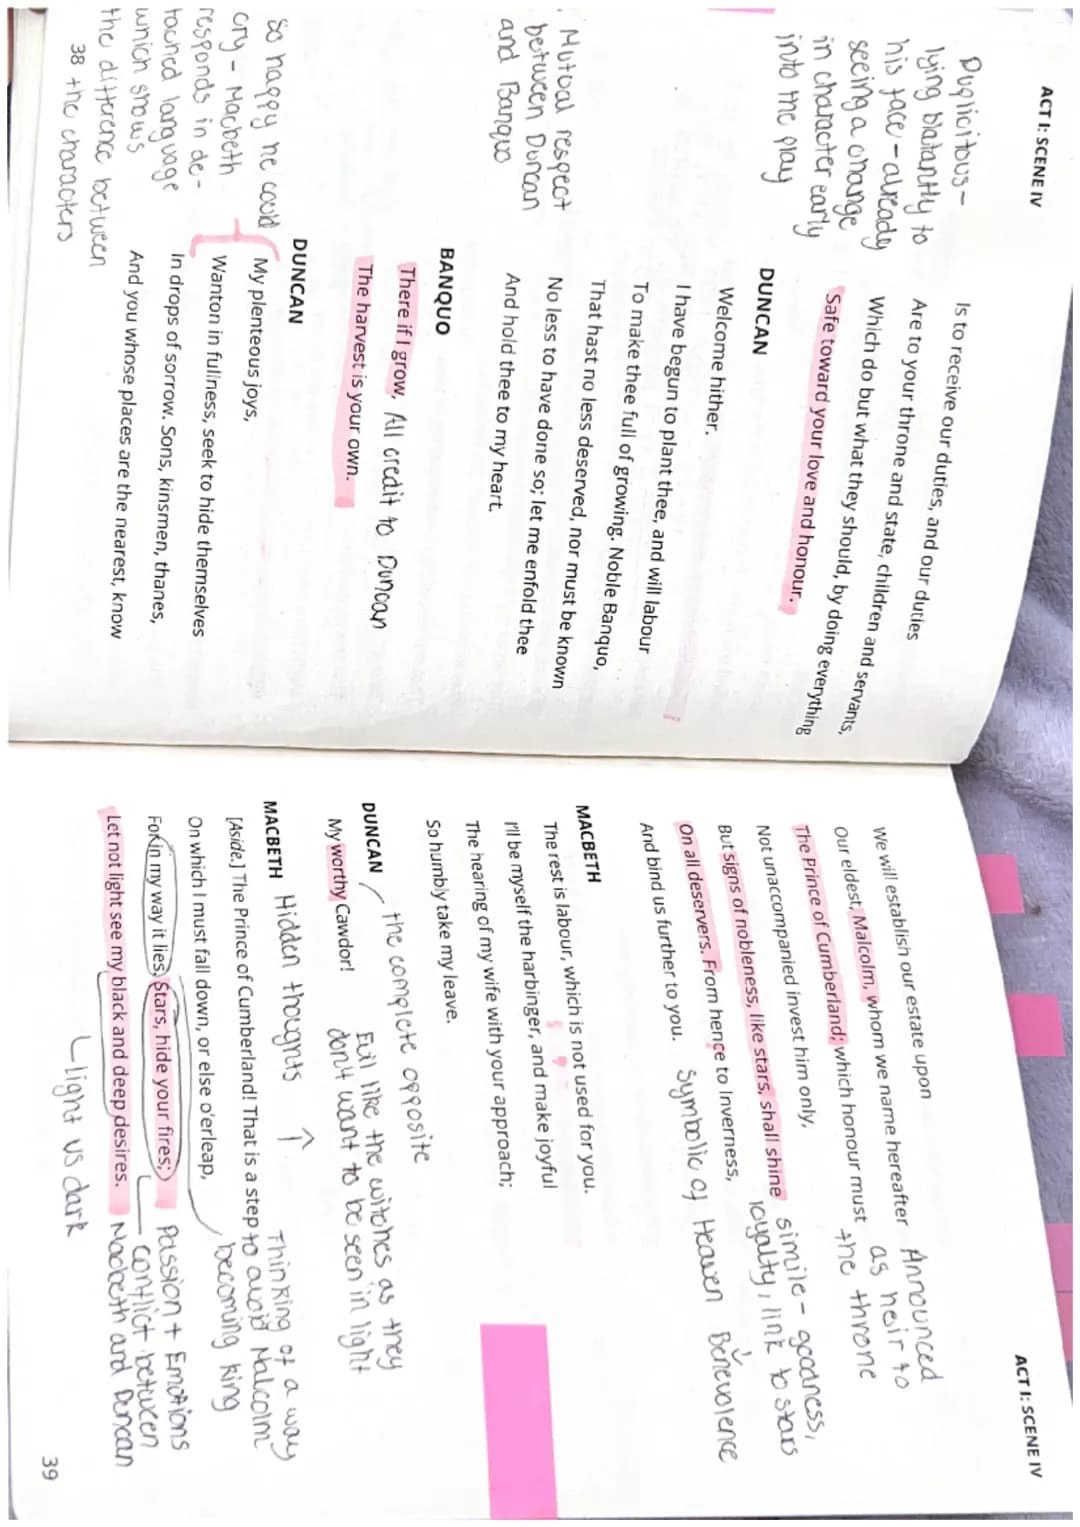 ACT I: SCENE IV
Duplicitous -
lying blatantly to
his face - already
seeing a change
in character early
into the play
Is to receive our duties, and our duties
Are to your throne and state, children and servants,
Which do but what they should, by doing everything
Safe toward your love and honour.
DUNCAN
Welcome hither.
I have begun to plant thee, and will labour
To make thee full of growing. Noble Banquo,
That hast no less deserved, nor must be known
No less to have done so; let me enfold thee
And hold thee to my heart.
Mutual respect
between Duncan
and Banquo
BANQUO
There if I grow,
The harvest is your own.
All credit to Duncan
DUNCAN
My plenteous joys,
Wanton in fullness, seek to hide themselves
In drops of sorrow. Sons, kinsmen, thanes,
And you whose places are the nearest, know
So happy he could
cry - Macbeth
responds in de-
tached language
which shows
the difference between
the characters
38
ACT I: SCENE IV
We will establish our estate upon
Our eldest, Malcolm, whom we name hereafter
The Prince of Cumberland; which honour must
Not unaccompanied invest him only,
But signs of nobleness, like stars, shall shine
On all deservers. From hence to Inverness,
And bind us further to you.
Announced
as heir to
the throne
simile - goodness,
loyalty, link to stars
Symbolic of Heaven Benevolence
MACBETH
The rest is labour, which is not used for you.
I'll be myself the harbinger, and make joyful
The hearing of my wife with your approach;
So humbly take my leave.
DUNCAN
the complete opposite
My worthy Cawdor!
Evil like the witches as they
don't want to be seen in light
MACBETH
Hidden thoughts
[Aside.] The Prince of Cumberland! That is a step
On which I must fall down, or else o'erleap,
For in my way it lies. Stars, hide your fires;
Let not light see my black and deep desires.
Thinking of a way
to avoid Malcolm
becoming king
Passion + Emotions
Conflict between
Macbeth and Duncan
Light vs dark
39